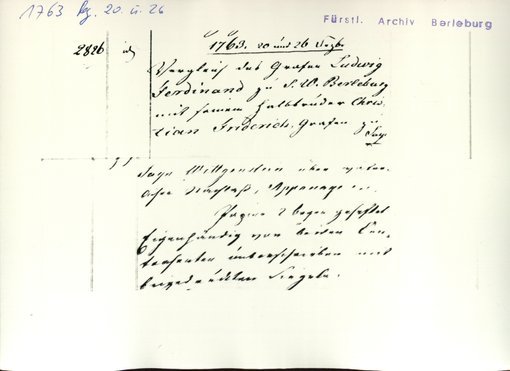 1763 Sez. 20. u. 26
Fürstl. Archiv Berleburg
2826
1763. 20 und 26 Sezbr
Vergleich des Grafen Ludwig
Ferdinand zu S. W. Berleburg
mit seinem Halbbruder Chris
tian Friderich Grafen zu
Sayn
Sayn Wittgenstein über väter
lichen Nachlaß, Appanage
Papier 2 bogen geheftet
Eigenhändig von beiden Con
trahenten unterschrieben mit
beigedrückten Siegeln.